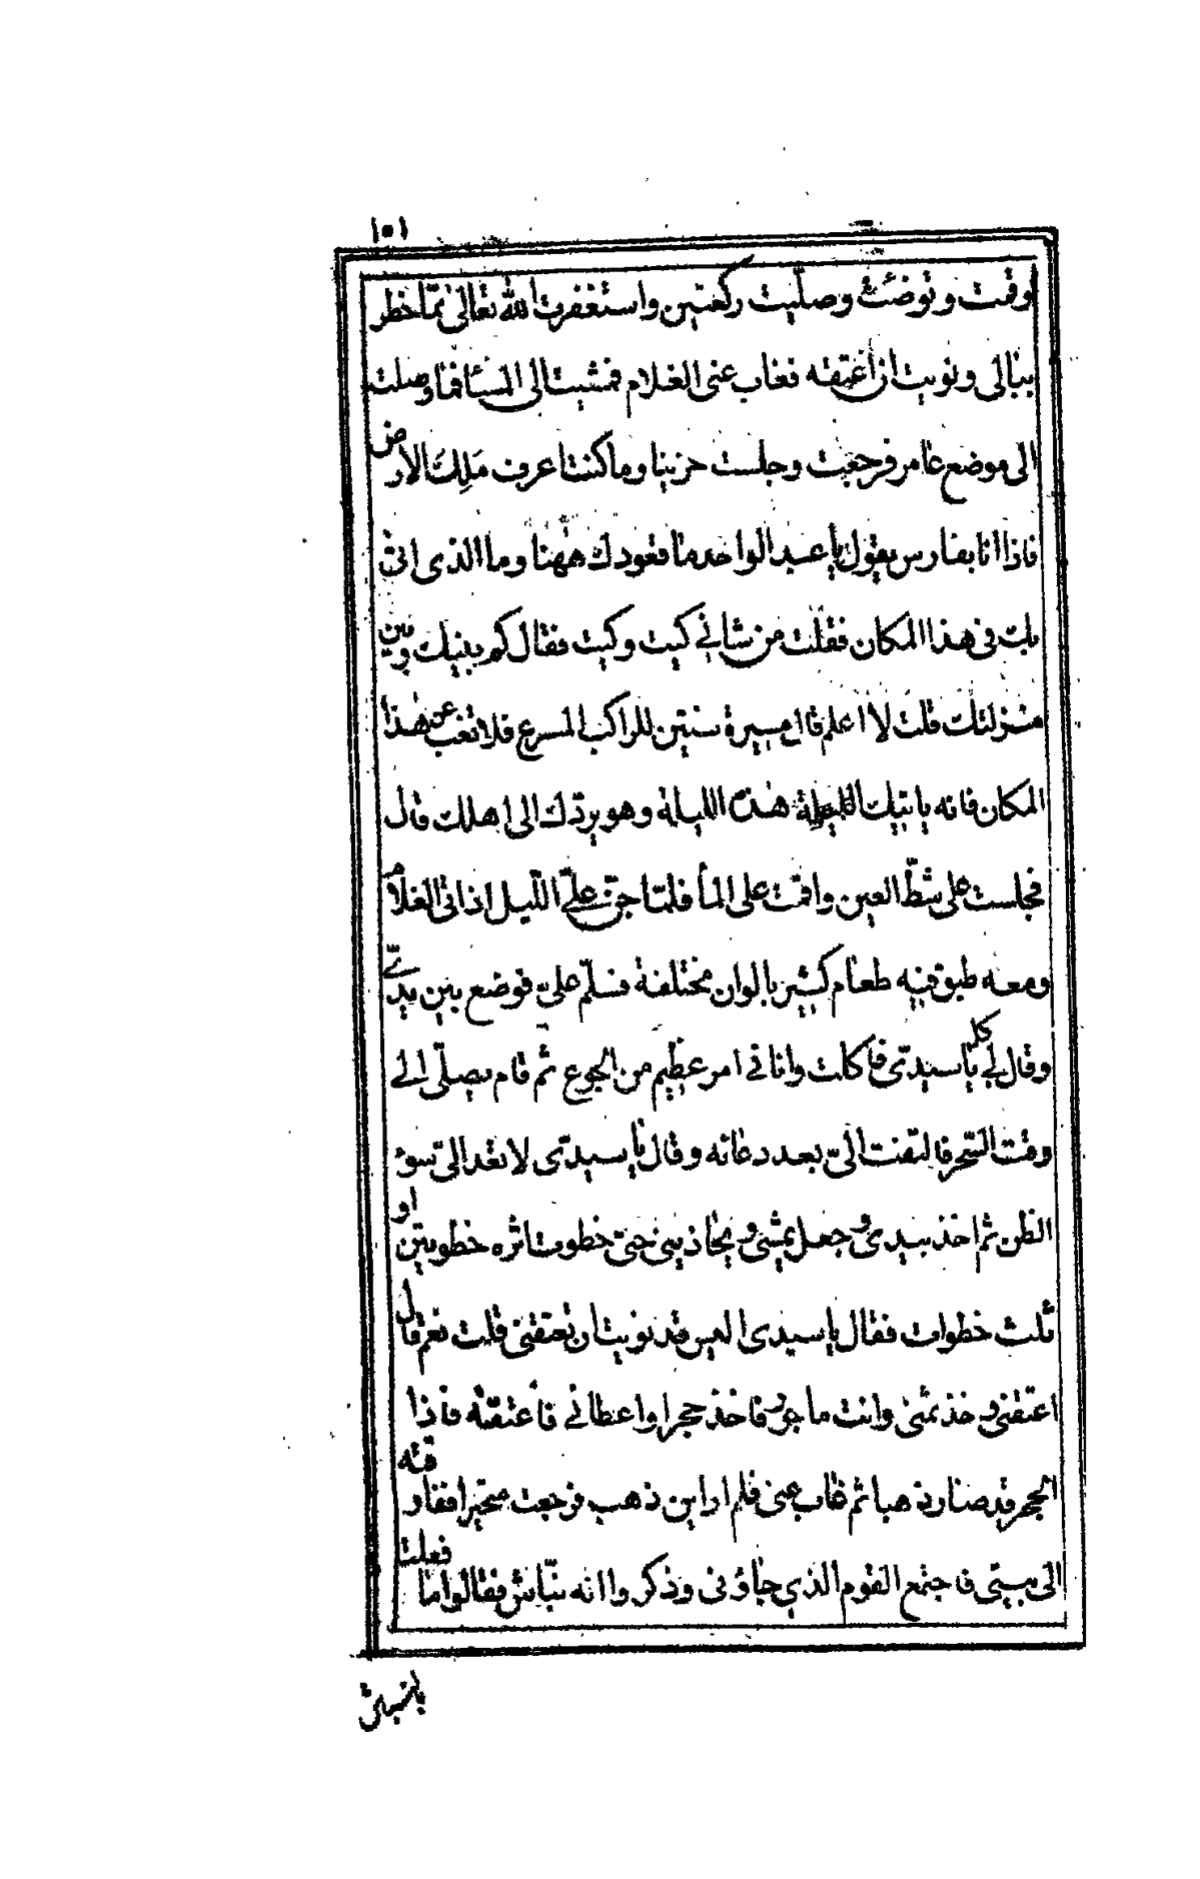 ١٥١
وقمت وتوضئت وصليت ركعتين واستغفرت الله تعالى ممّا خطر
ببالى ونويت ان اعتقه فغاب عنى الغلام فمشيت الى المسا فما وصلت
الى موضع عامر فرجعت وجلست حزينا وما كنت اعرف مَلِكَ الارض
فاذا انا بفارس يقول يا عبد الواحد ما قعودك ههنا وما الذى اتى
بك فى هذا المكان فقلت من شانى كيت وكيت فقال كم بينك وبين
منزلتك قلت لا اعلم قال مسيرة سنتين للراكب المسرع فلا تغب عن هذا
المكان فانه يا تيك الليلة هذه الليلة وهو يردّك الى اهلك قال
فجلست على شطّ العين واقمت على الماْ فلمّا جنّ علىّ اللّيل اذ اتى الغلام
ومعه طبق فيه طعام كثير بالوان مختلفة فسلّم علىّ فوضع بين يدىّ
وقال لى كل يا سيدى فاكلت وانا فى امر عظيم من الجوع ثم قام يصلّى الى
وقت السّحر فالتفت الىّ بعد دعائه وقال يا سيدى لا تعد الىّ سوء
الظن ثم اخذ بيدى وجعل يمشى ويحاذينى حتى خطوت اثره خطوتين او
ثلث خطوات فقال يا سيدى اليس قد نويت ان تعتقنى قلت نعم قال
اعتقنى وخذ ثمنى وانت ماجور فاخذ حجرا واعطانى فاعتقته فاذا
الحجر قد صار ذهبا ثم غاب عنى فلم ار اين ذهب فرجعت متحيرا ففارقته
الى بيتى فاجتمع القوم الذي جاؤنى وذكروا انه نبّاش فقالوا ما فعلت
بالنباش